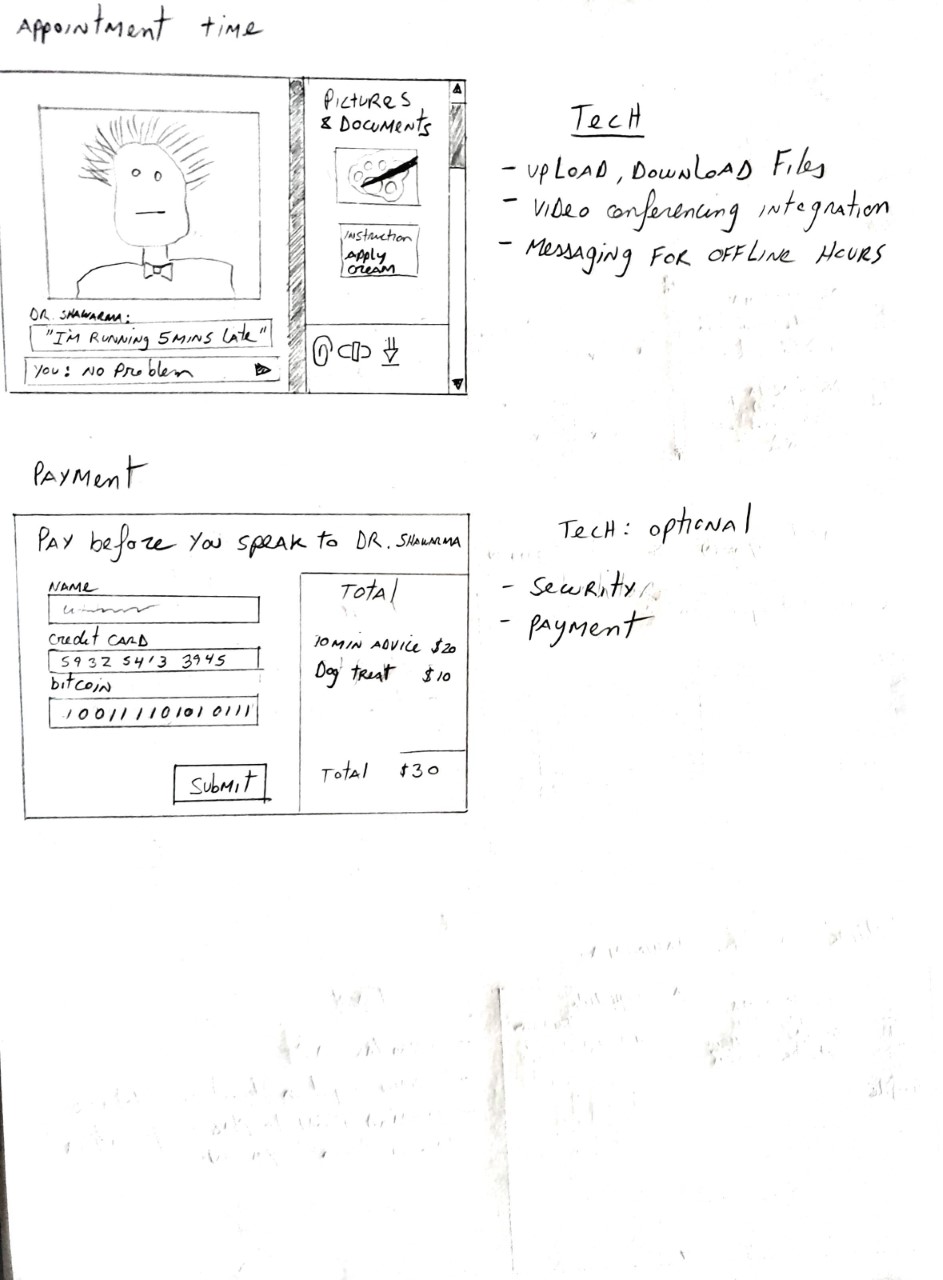 Appointment time
Pictures
& Documents
instruction
apply
cream
DR. SHAWARMA:
"I'm RUNNING 5MINS Late"
You: No Problem
TECH
- UPLOAD, DOWNLOAD Files
- VIDEO conferencing integration
- Messaging FOR OFFLINE HOURS
Payment
PAY before You speak to DR. SHAWARMA
NAME
credit CARD
5932 5413 3945
bitcoin
100111101010111
Submit
Total
10 MIN ADVICE $20
Dog treat $10
Total $30
Tech: optional
- Security
- Payment